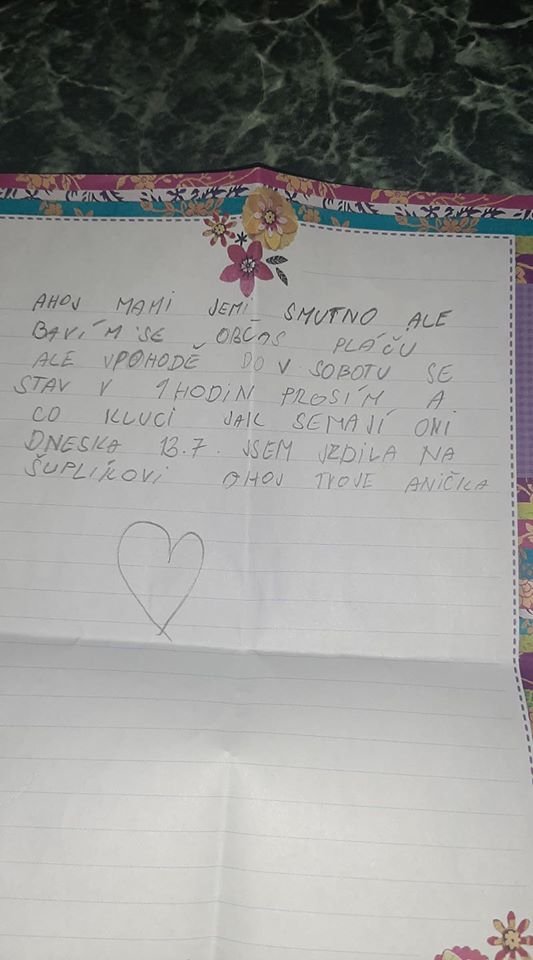 AHOJ MAMI JEMI SMUTNO ALE
BAVÍM SE OBČAS PLÁČU
ALE VPOHODĚ DO V SOBOTU SE
STAV V 1HODIN PROSÍM A
CO KLUCI JAK SEMAJÍ ONI
DNESKA 13.7. JSEM JEDILA NA
ŠUPLÍKOVI AHOJ TVOJE ANIČKA